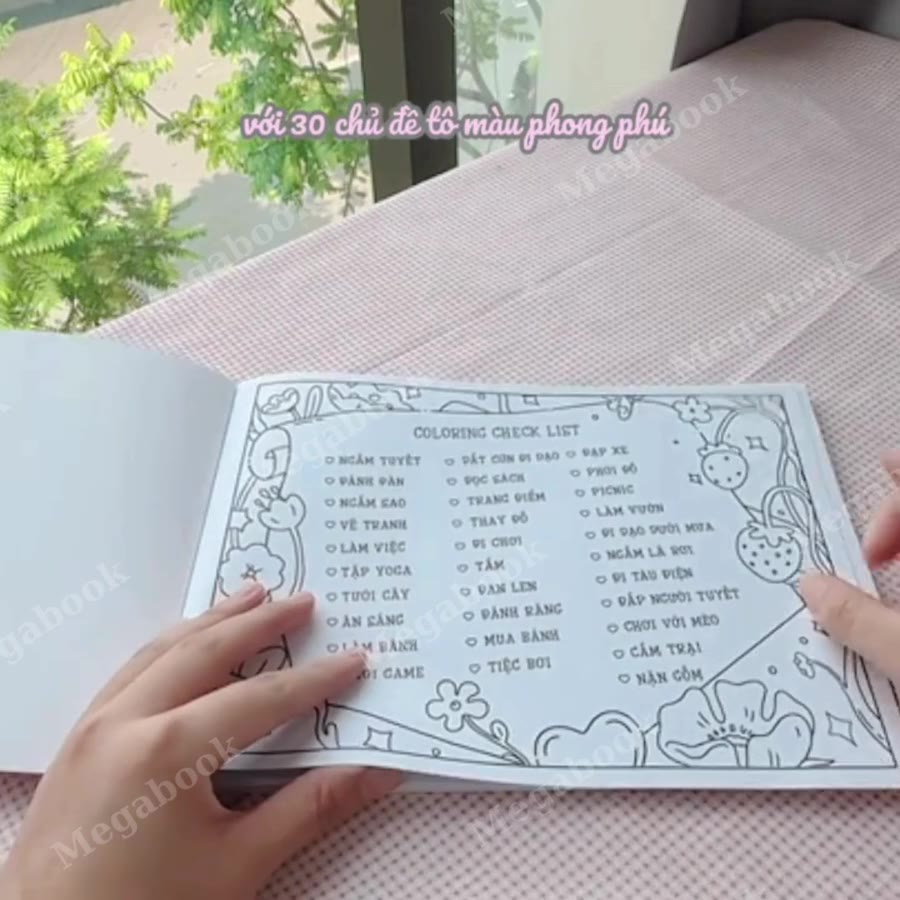 với 30 chủ đề tô màu phong phú
COLORING CHECK LIST
NGẮM TUYẾT
ĐÁNH ĐÀN
NGẮM SAO
VẼ TRANH
LÀM VIỆC
TẬP YOGA
TƯỚI CÂY
ĂN SÁNG
LÀM BÁNH
GAME
DẮT CÚN ĐI DẠO
ĐỌC SÁCH
TRANG ĐIỂM
THAY ĐỒ
ĐI CHƠI
TẮM
ĐAN LEN
ĐÁNH RĂNG
MUA BÁNH
TIỆC BƠI
ĐẠP XE
PHƠI ĐỒ
PICNIC
LÀM VƯỜN
ĐI DẠO DƯỚI MƯA
NGẮM LÁ RƠI
ĐI TÀU ĐIỆN
ĐẮP NGƯỜI TUYẾT
CHƠI VỚI MÈO
CẮM TRẠI
NẶN GỐM
Megabook
Megabook
Megabook
Megabook
Megabook
Megabook
Megabook
Megabook
Megabook
Megabook